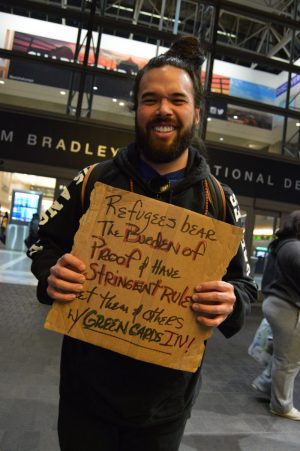 M BRADLEY
NATIONAL DE
Refugees bear
The BURDEN OF
PROOF & HAVE
STRINGENT RULES
Let them & others
W/ GREEN CARDS IN!